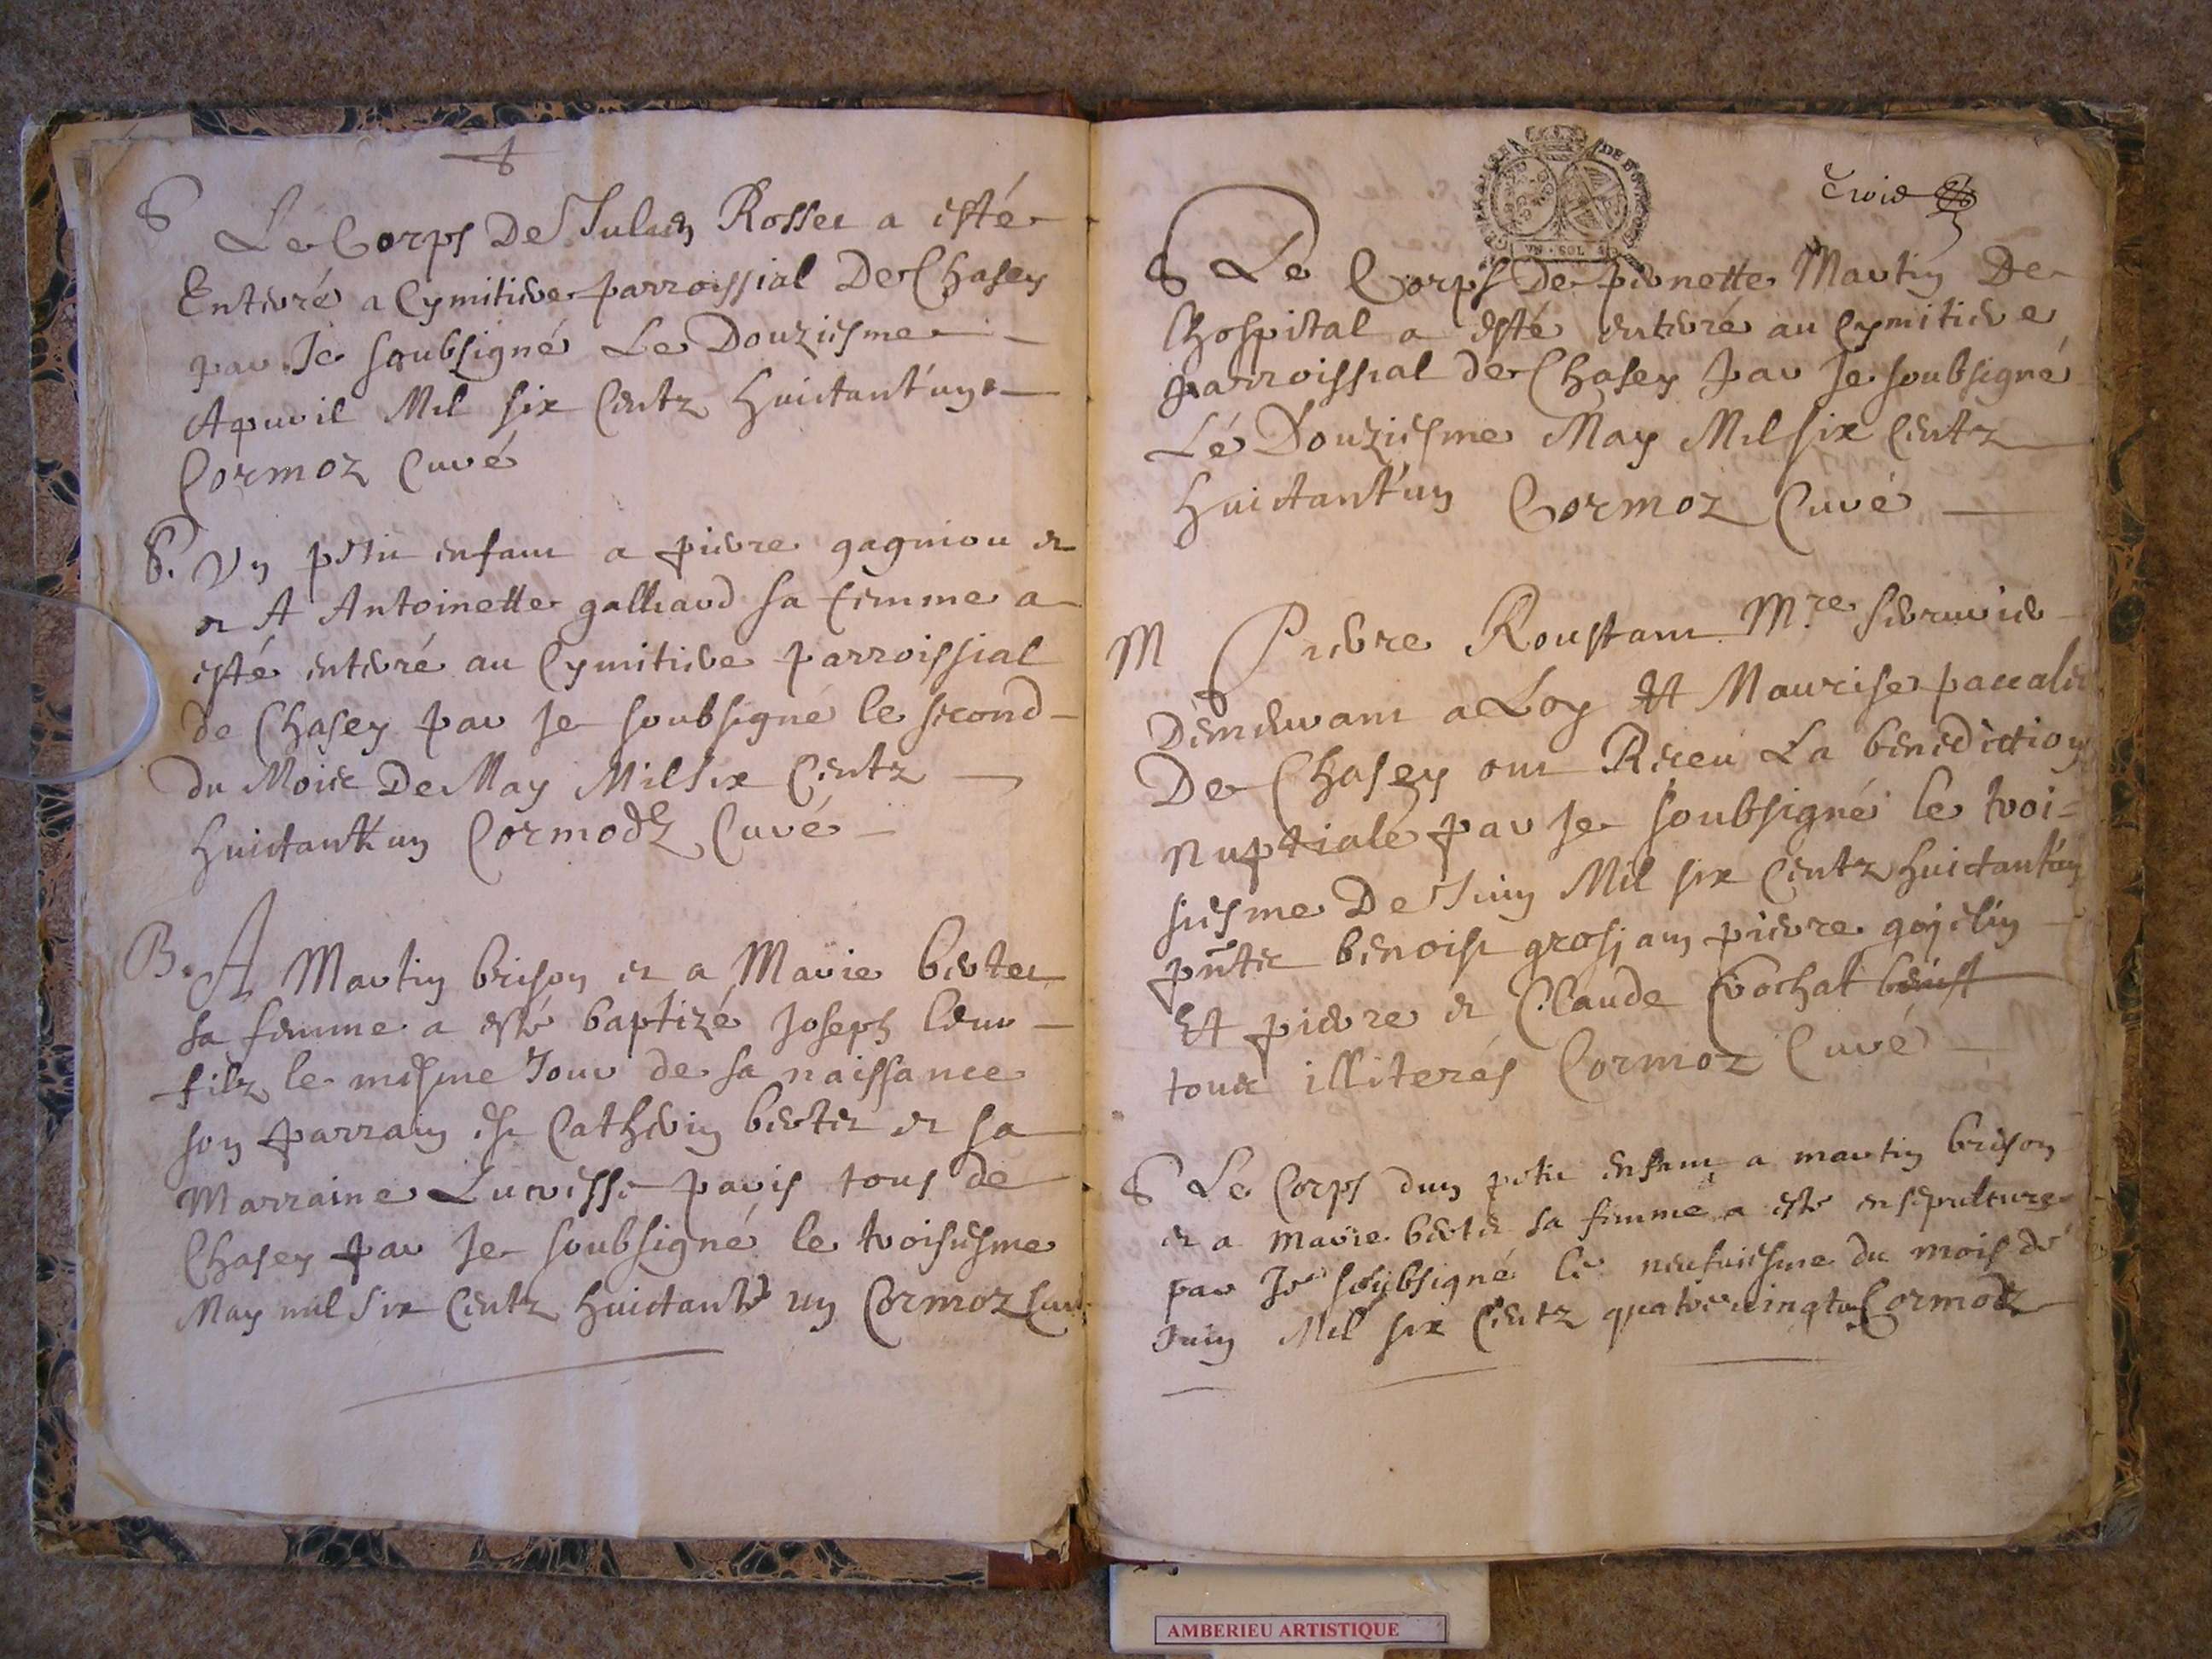 S Le Corps De Julien Rosset a esté
Enterré a Cymitiere parroissial De Chasey
par Je soubsigné Le Douziesme
Apuril Mil six Centz huictant'un
Cormoz Curé
S. Un petit enfant a pierre gagniou et
et A Antoinette galliard sa femme a
esté enterré au Cymitiere parroissial
de Chasey par Je soubsigné le second
du Mois De May Mil Six Centz
huictant'un Cormodz Curé
B. A Martin brison et a Marie bertet
sa femme a esté baptizé Joseph leur
filz le mesme Jour de sa naissance
son parrain est Catherin bertet et sa
Marraine paris tous de
Chasey par Je soubsigné le troisiesme
May mil Six Centz huictante un Cormoz Curé
DE BOURGOG
UN SOL
Trois
S Le Corps De pernette Martin De
lhospital a esté enterré au Cymitiere
parroissial de Chasey par Je soubsigné
Le Douziesme May Mil six Centz
huictant'un Cormoz Curé
M Pierre Roustant M.re serrurier
Demeurant a Loy Et Maurise
De Chasey ont Receu La benediction
nuptiale par Je soubsigné le troi=
siesme De Juin Mil six Centz huictant'un
pñtz benoist grosjan pierre gojelin
Et pierre et Claude trochat
tous illiterés Cormoz Curé
S Le Corps dun petit enfant a martin brison
et a marie bertet sa femme a esté ensepulturé
par Je soubsigné le neufuiesme du mois de
Juin Mil six Centz quatrevingtun Cormodz
AMBERIEU ARTISTIQUE